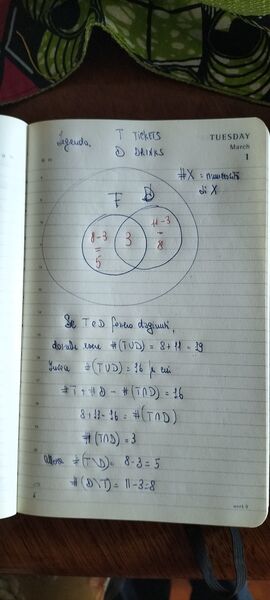 Legenda. T TICKETS
D DRINKS
TUESDAY
March
1
#X = numerosità
di X
T D
8-3
=
5
3
11-3
=
8
Se T e D fossero disgiunti,
dovrebbe essere #(T∪D) = 8+11 = 19
Invece #(T∪D) = 16 per cui
#T + #D - #(T∩D) = 16
8+11-16 = #(T∩D)
#(T∩D) = 3
Allora #(T\D) = 8-3 = 5
#(D\T) = 11-3=8
week 9